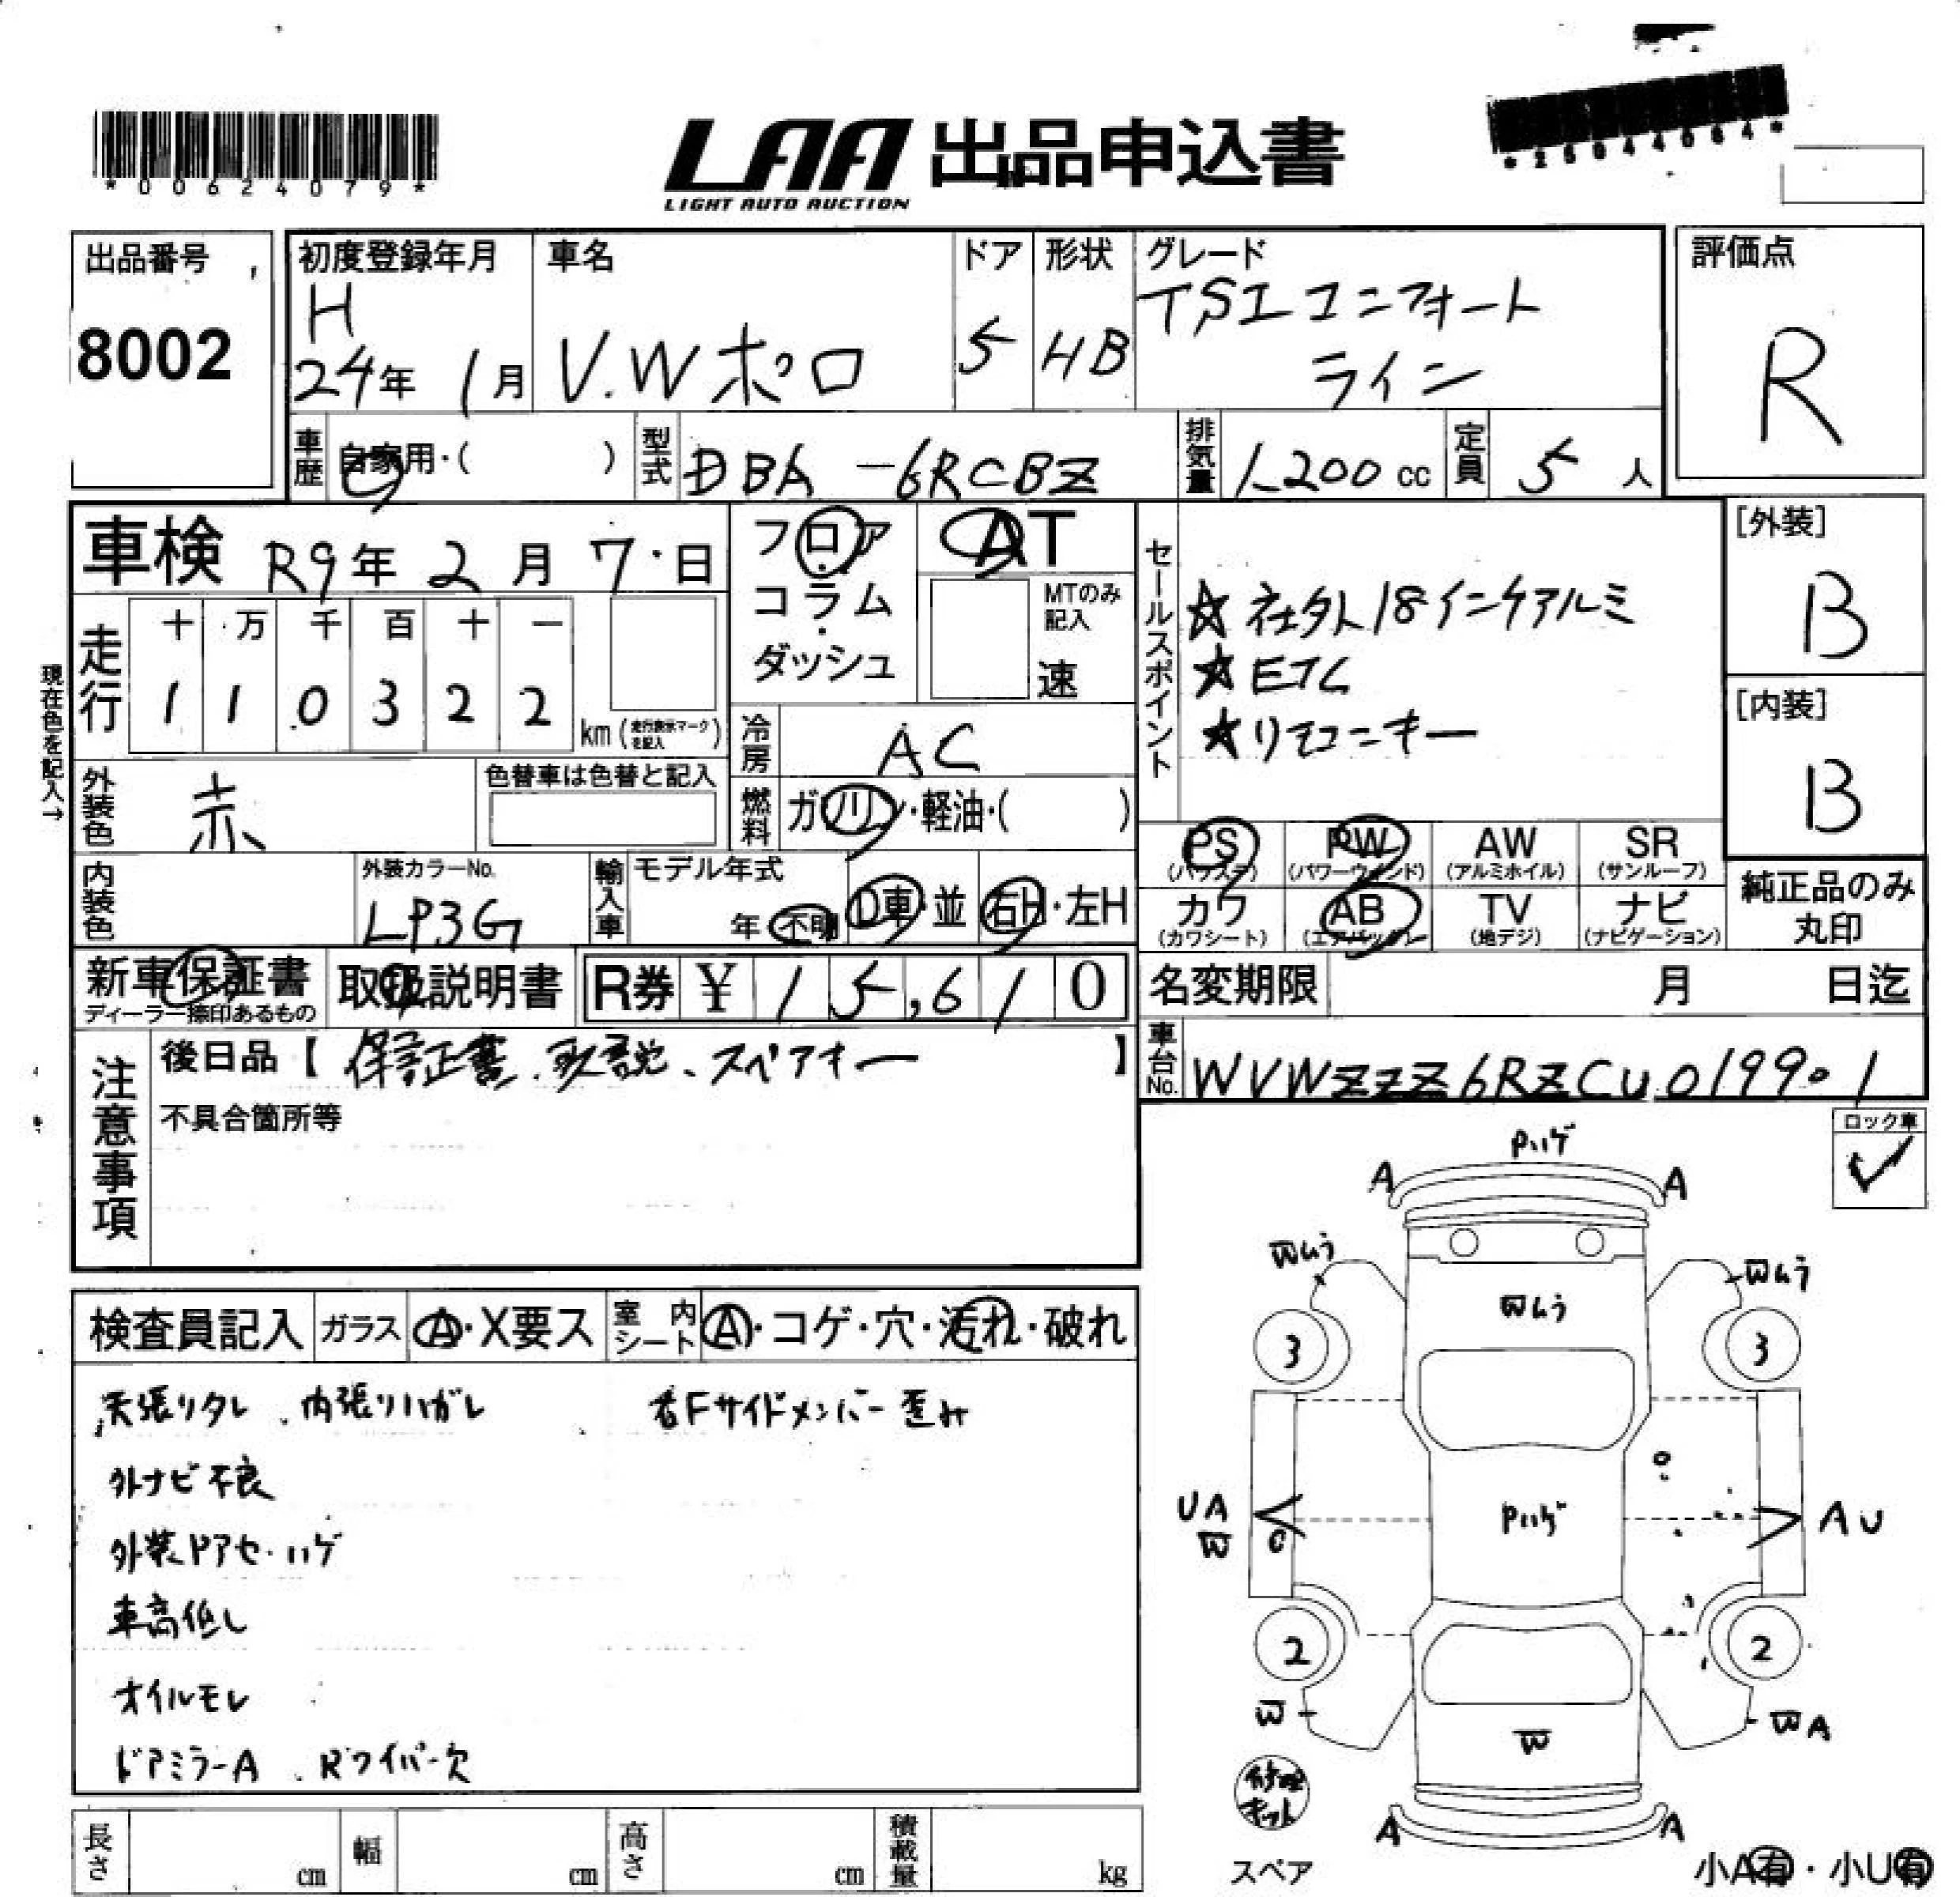 *00624079*
LAA 出品申込書
LIGHT AUTO AUCTION
*25044064*
出品番号
8002
初度登録年月
H
24年 1月
車名
V.Wポロ
ドア
5
形状
HB
グレード
TSIコンフォート
ライン
評価点
R
車歴 自家用・( )
型式 DBA-6RCBZ
排気量 1200cc
定員 5人
車検 R9年 2月 7日
フロア
コラム
・
ダッシュ
AT
MTのみ
記入
速
現在色を記入→
走行
十 万 千 百 十 一
1 1 0 3 2 2
km(走行表示マークを記入)
冷房 AC
セールスポイント
☆社外18インチアルミ
☆ETC
☆リモコンキー
[外装]
B
[内装]
B
外装色 赤
色替車は色替と記入
燃料 ガソリン・軽油・( )
PS (パワステ)
PW (パワーウインド)
AW (アルミホイル)
SR (サンルーフ)
カワ (カワシート)
AB (エアバック)
TV (地デジ)
ナビ (ナビゲーション)
純正品のみ
丸印
内装色
外装カラーNo.
LP3G
輸入車
モデル年式
年 不明
D車・並
右H・左H
新車保証書
ディーラー捺印あるもの
取扱説明書
R券 ¥ 15,610
名変期限 月 日迄
注意事項
後日品【 保証書、取説、スペアキー 】
不具合箇所等
車台No. WVWZZZ6RZCU019901
ロック車
✓
検査員記入
ガラス A・X要ス
室内シート A・コゲ・穴・汚れ・破れ
天張りタレ、内張りハガレ
右Fサイドメンバー歪み
外ナビ不良
外装ドアセ・ハゲ
車高低し
オイルモレ
ドアミラーA、Rワイパー欠
Pハゲ
A A
Wムラ Wムラ
Wムラ
3 3
UA
W
Pハゲ
AU
2 2
W
W
WA
修理
キット
スペア
A A
小A有・小U有
長さ cm
幅 cm
高さ cm
積載量 kg